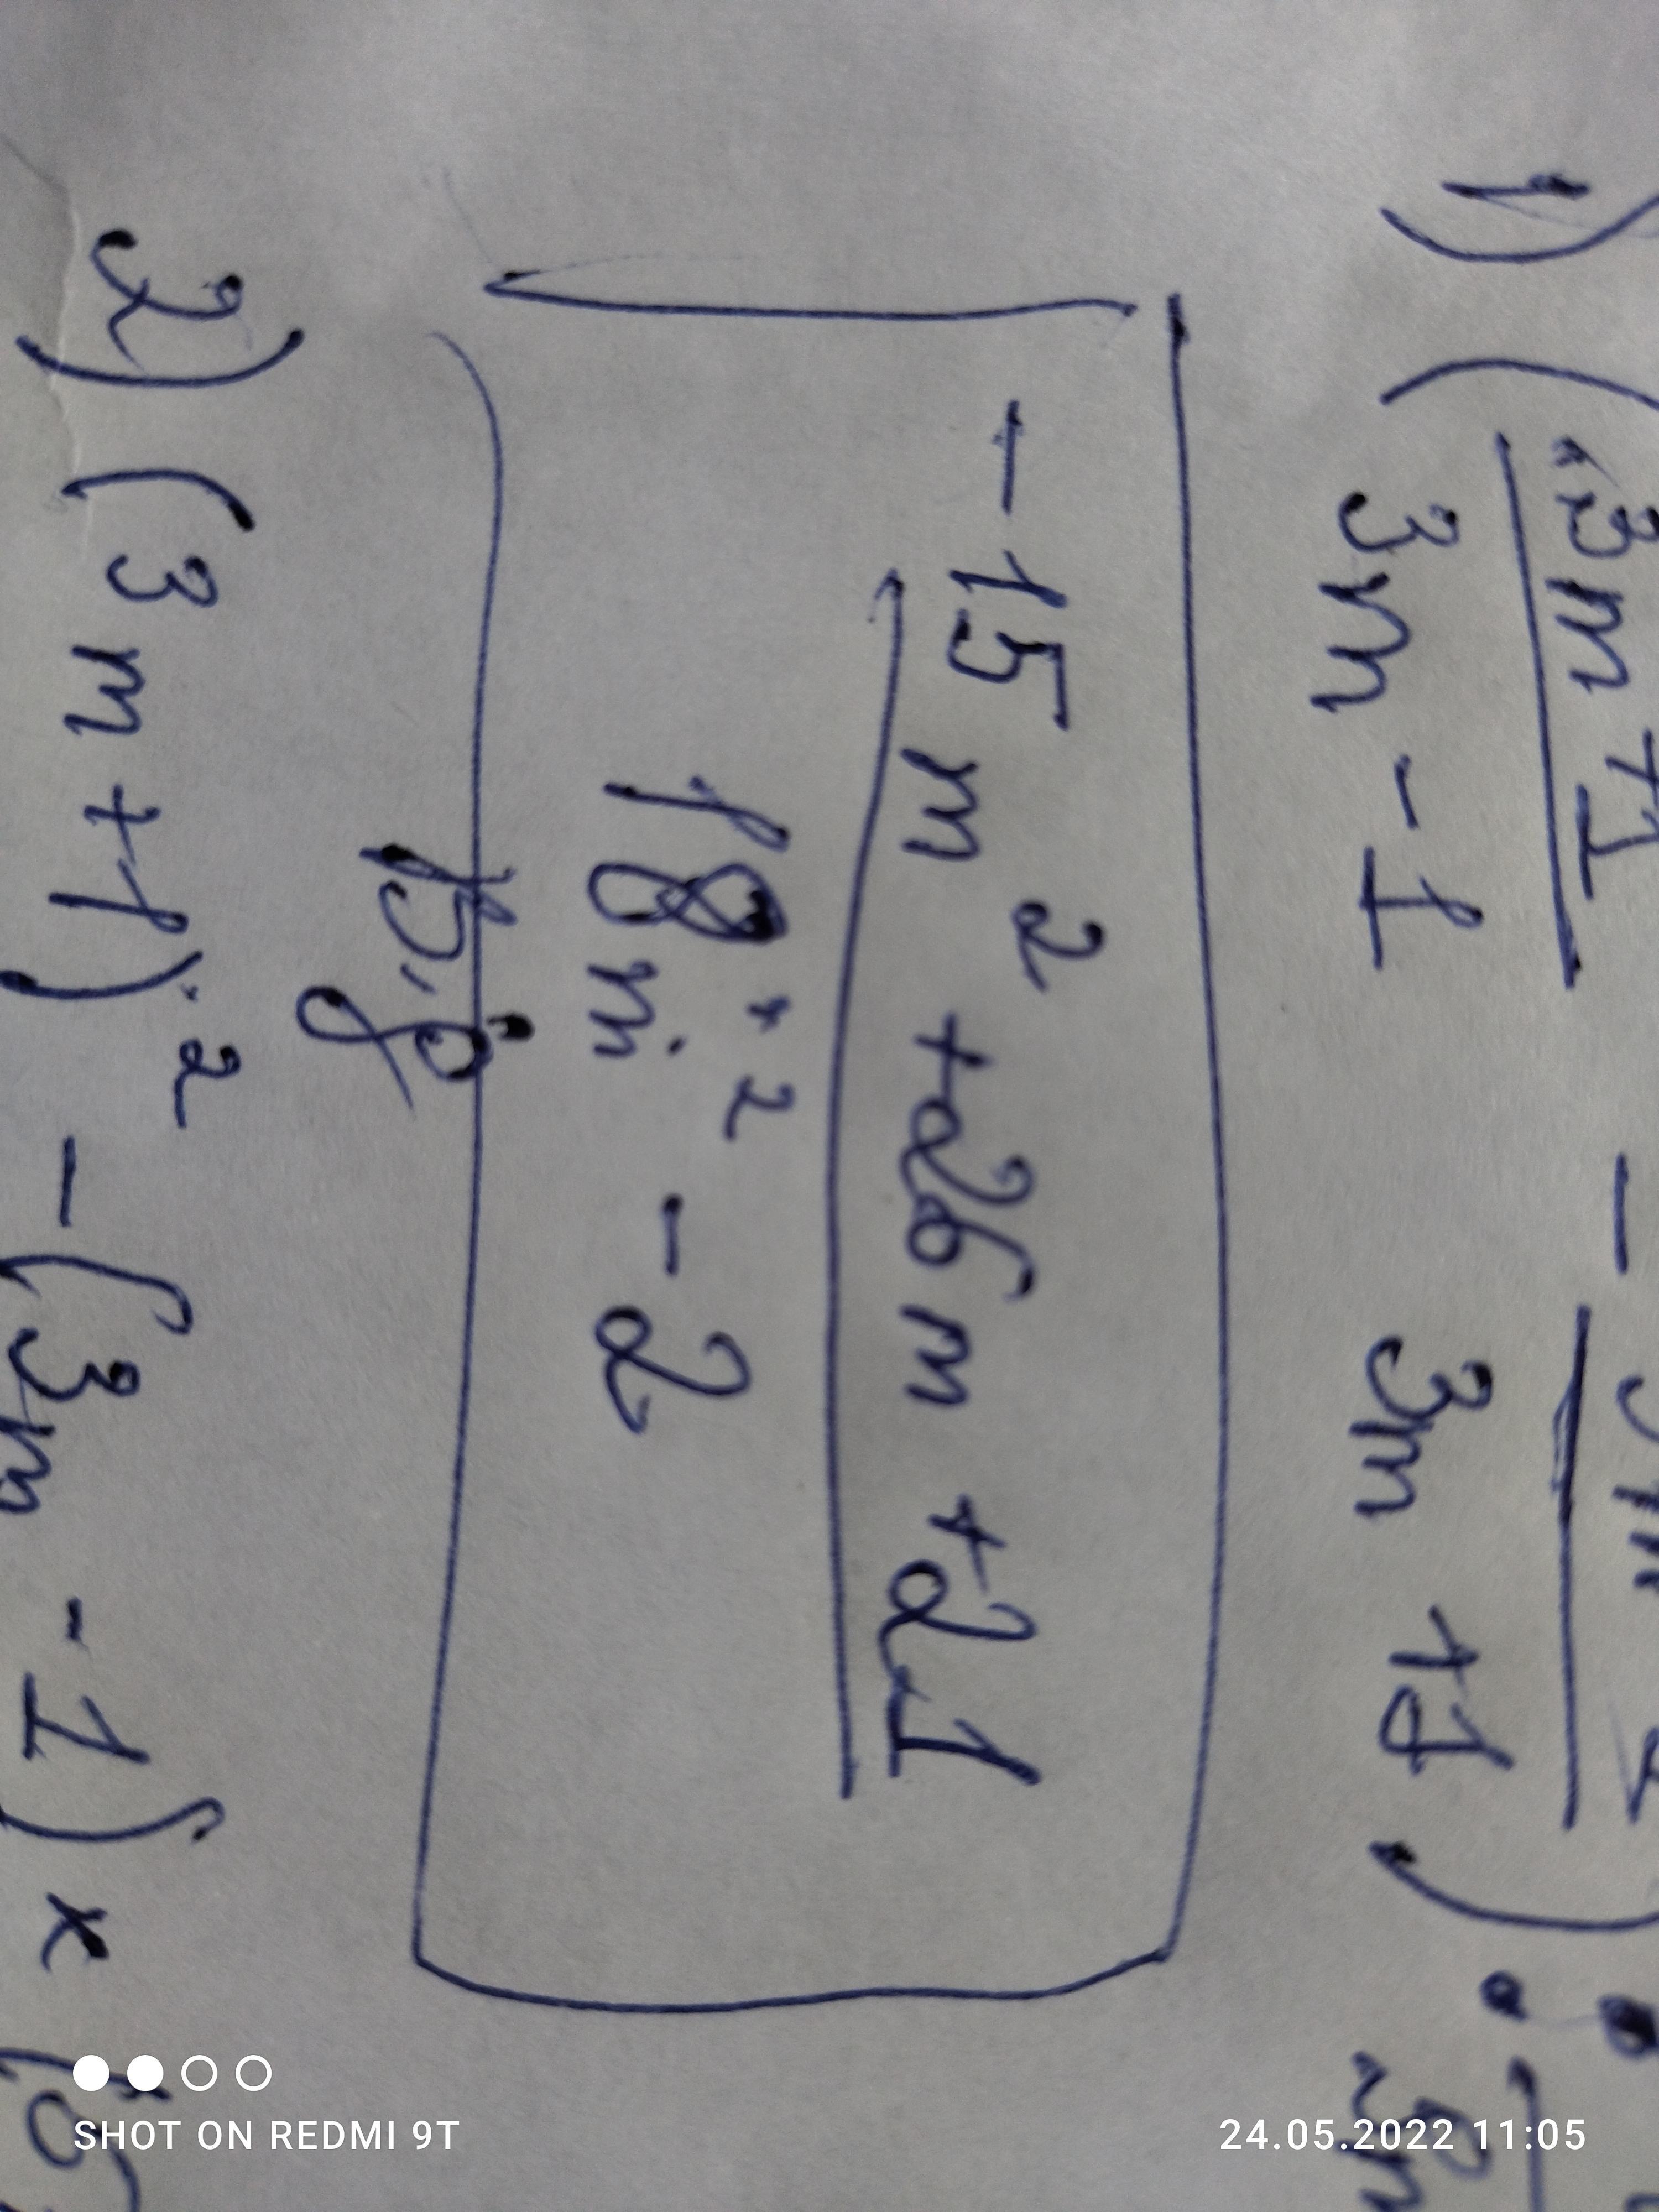 3m+1
1) ( — )
3m - 1 3m + 1
-15m² + 26m + 21
18m² - 2
2) (3m+1)² - (3m - 1) x (
SHOT ON REDMI 9T
24.05.2022 11:05